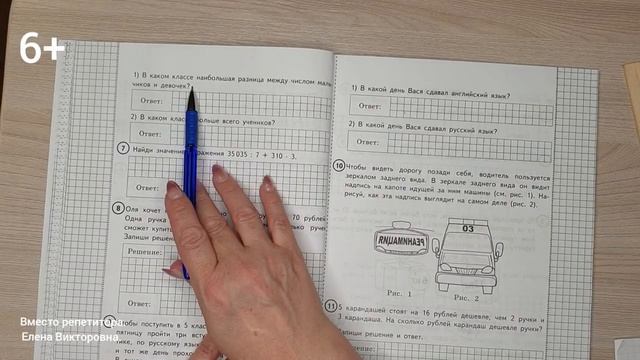 6+
1) В каком классе наибольшая разница между числом маль
чиков и девочек?
Ответ:
2) В каком больше всего учеников?
Ответ:
7 Найди значение выражения 35 035 : 7 + 310 · 3.
Ответ:
8 Оля хочет 70 рублей
Одна ручка
сможет купить ручек
Запиши решение
Решение:
Ответ:
Чтобы поступить в 5 класс
пятницу пройти три
ке, по русскому язык
и тот же день
1) В какой день Вася сдавал английский язык?
Ответ:
2) В какой день Вася сдавал русский язык?
Ответ:
10 Чтобы видеть дорогу позади себя, водитель пользуется
зеркалом заднего вида. В зеркале заднего вида он видит
надпись на капоте идущей за ним машины (см. рис. 1). На-
рисуй, как эта надпись выглядит на самом деле (рис. 2).
РЕАНИМАЦИЯ
03
Рис. 1 Рис. 2
11 5 карандашей стоят на 16 рублей дешевле, чем 2 ручки и
3 карандаша. На сколько рублей карандаш дешевле ручки?
Запиши решение и ответ.
Решение:
Вместо репетитора.
Елена Викторовна.